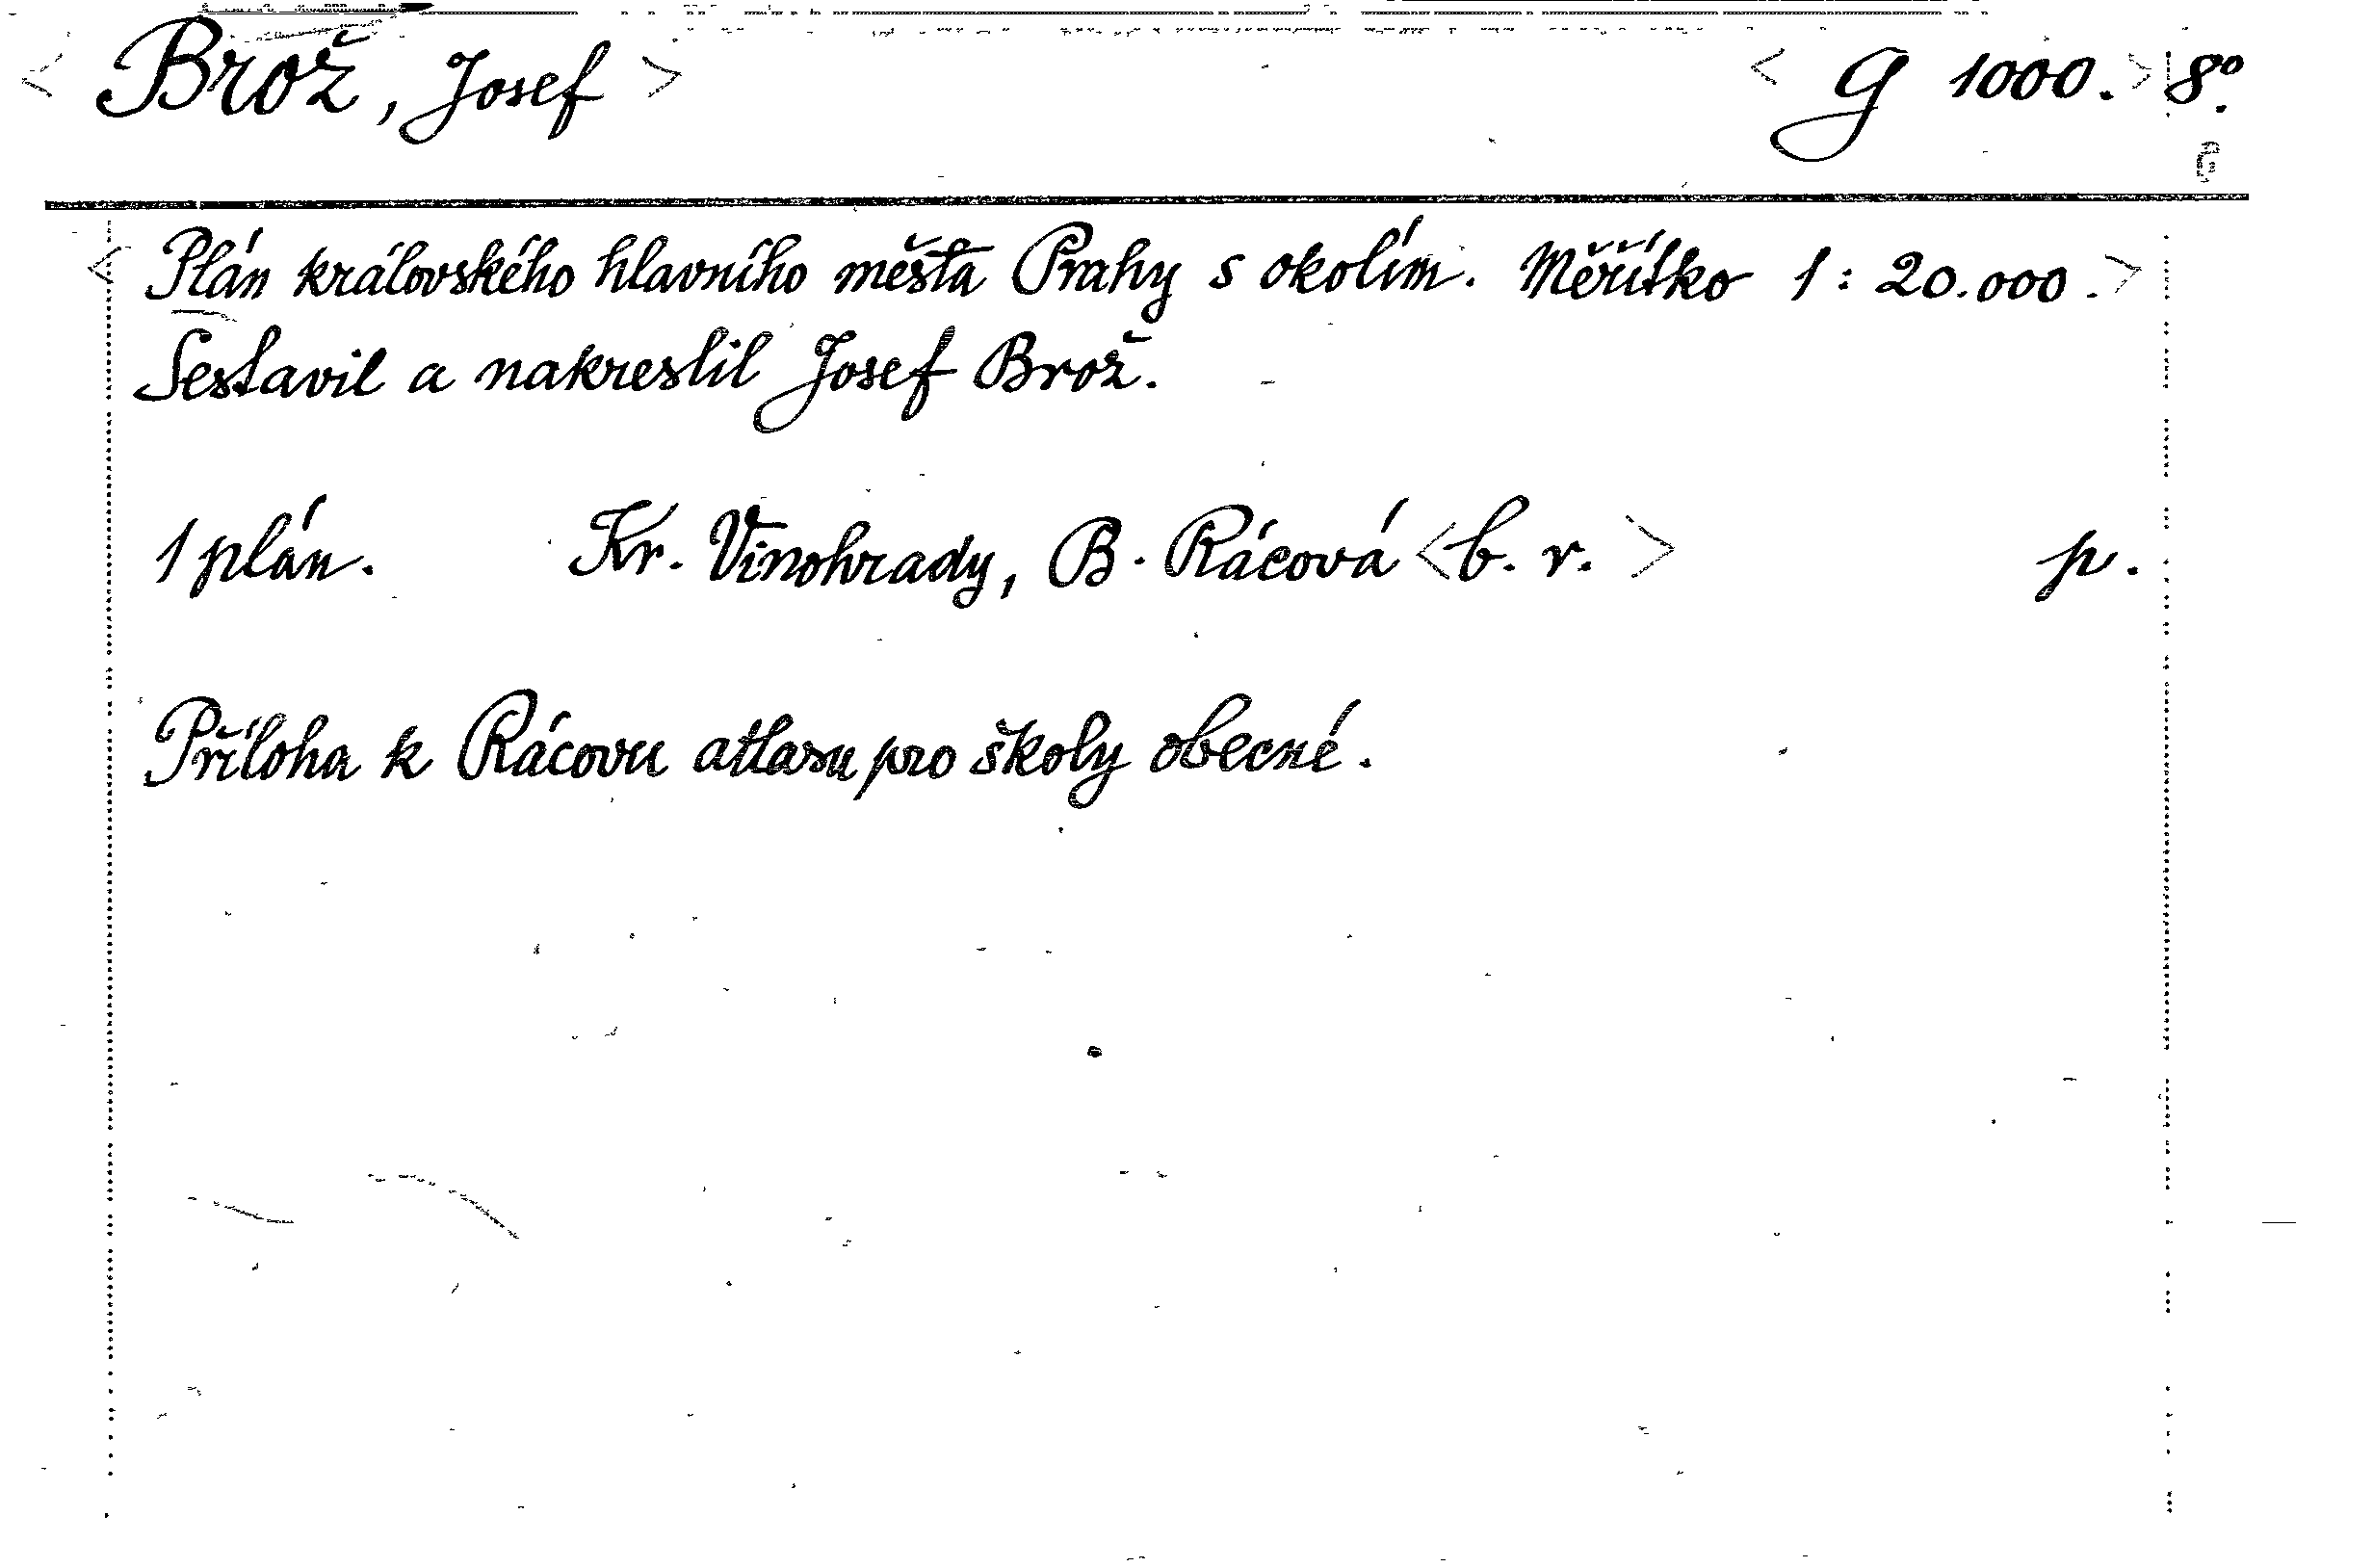 < Brož, Josef > < G 1000. > 8º.
< Plán královského hlavního města Prahy s okolím. Měřítko 1 : 20.000. >
Sestavil a nakreslil Josef Brož.
1 plán. Kr. Vinohrady, B. Rácová < b. r. > p.
Příloha k Rácovu atlasu pro školy obecné.